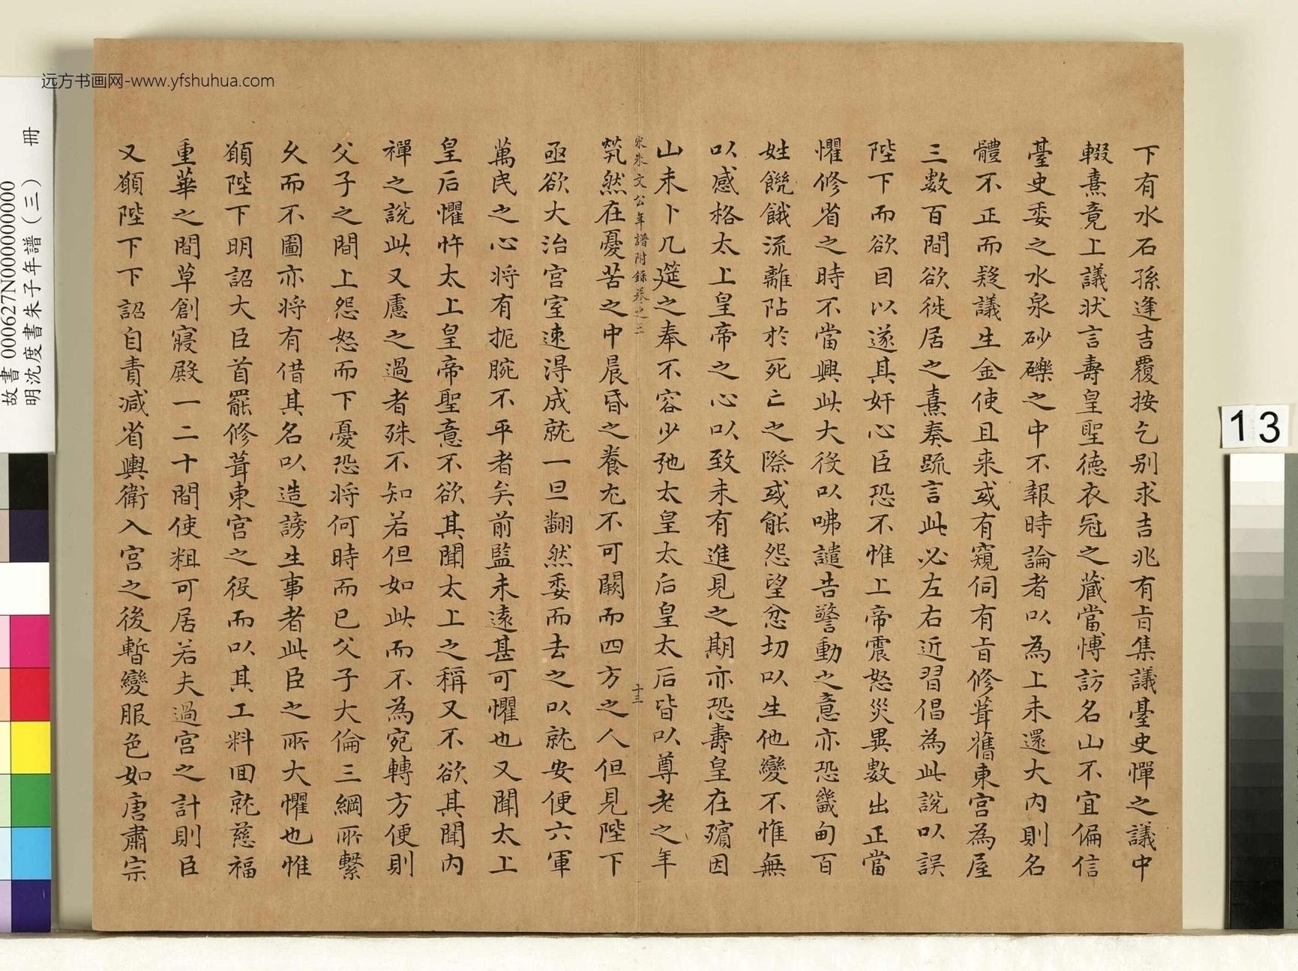 下有水石孫逢吉覆按乞别求吉兆有旨集議臺史憚之議中
輟熹竟上議狀言壽皇聖德衣冠之藏當愽訪名山不宜偏信
臺史委之水泉砂礫之中不報時論者以為上未還大內則名
體不正而疑議生金使且来或有窺伺有旨修葺舊東宫為屋
三數百間欲徙居之熹奏䟽言此必左右近習倡為此說以誤
陛下而欲因以遂其奸心臣恐不惟上帝震怒災異數出正當
懼修省之時不當興此大役以咈譴告警動之意亦恐畿甸百
姓饑餓流離阽於死亡之際或能怨望忿切以生他變不惟無
以感格太上皇帝之心以致未有進見之期亦恐壽皇在殯因
山未卜几筵之奉不容少弛太皇太后皇太后皆以尊老之年
宋朱文公年譜附錄卷之三 十三
煢然在憂苦之中晨昏之養尤不可闕而四方之人但見陛下
亟欲大治宫室速得成就一旦翻然委而去之以就安便六軍
萬民之心将有扼腕不平者矣前監未遠甚可懼也又聞太上
皇后懼忤太上皇帝聖意不欲其聞太上之稱又不欲其聞內
禪之說此又慮之過者殊不知若但如此而不為宛轉方便則
父子之間上怨怒而下憂恐将何時而已父子大倫三綱所繫
久而不圖亦将有借其名以造謗生事者此臣之所大懼也惟
願陛下明詔大臣首罷修葺東宫之役而以其工料回就慈福
重華之間草創寢殿一二十間使粗可居若夫過宫之計則臣
又願陛下下詔自責减省輿衛入宫之後暫變服色如唐肅宗
远方书画网-www.yfshuhua.com
故書000627N000000000 冊
明沈度書朱子年譜(三)
13